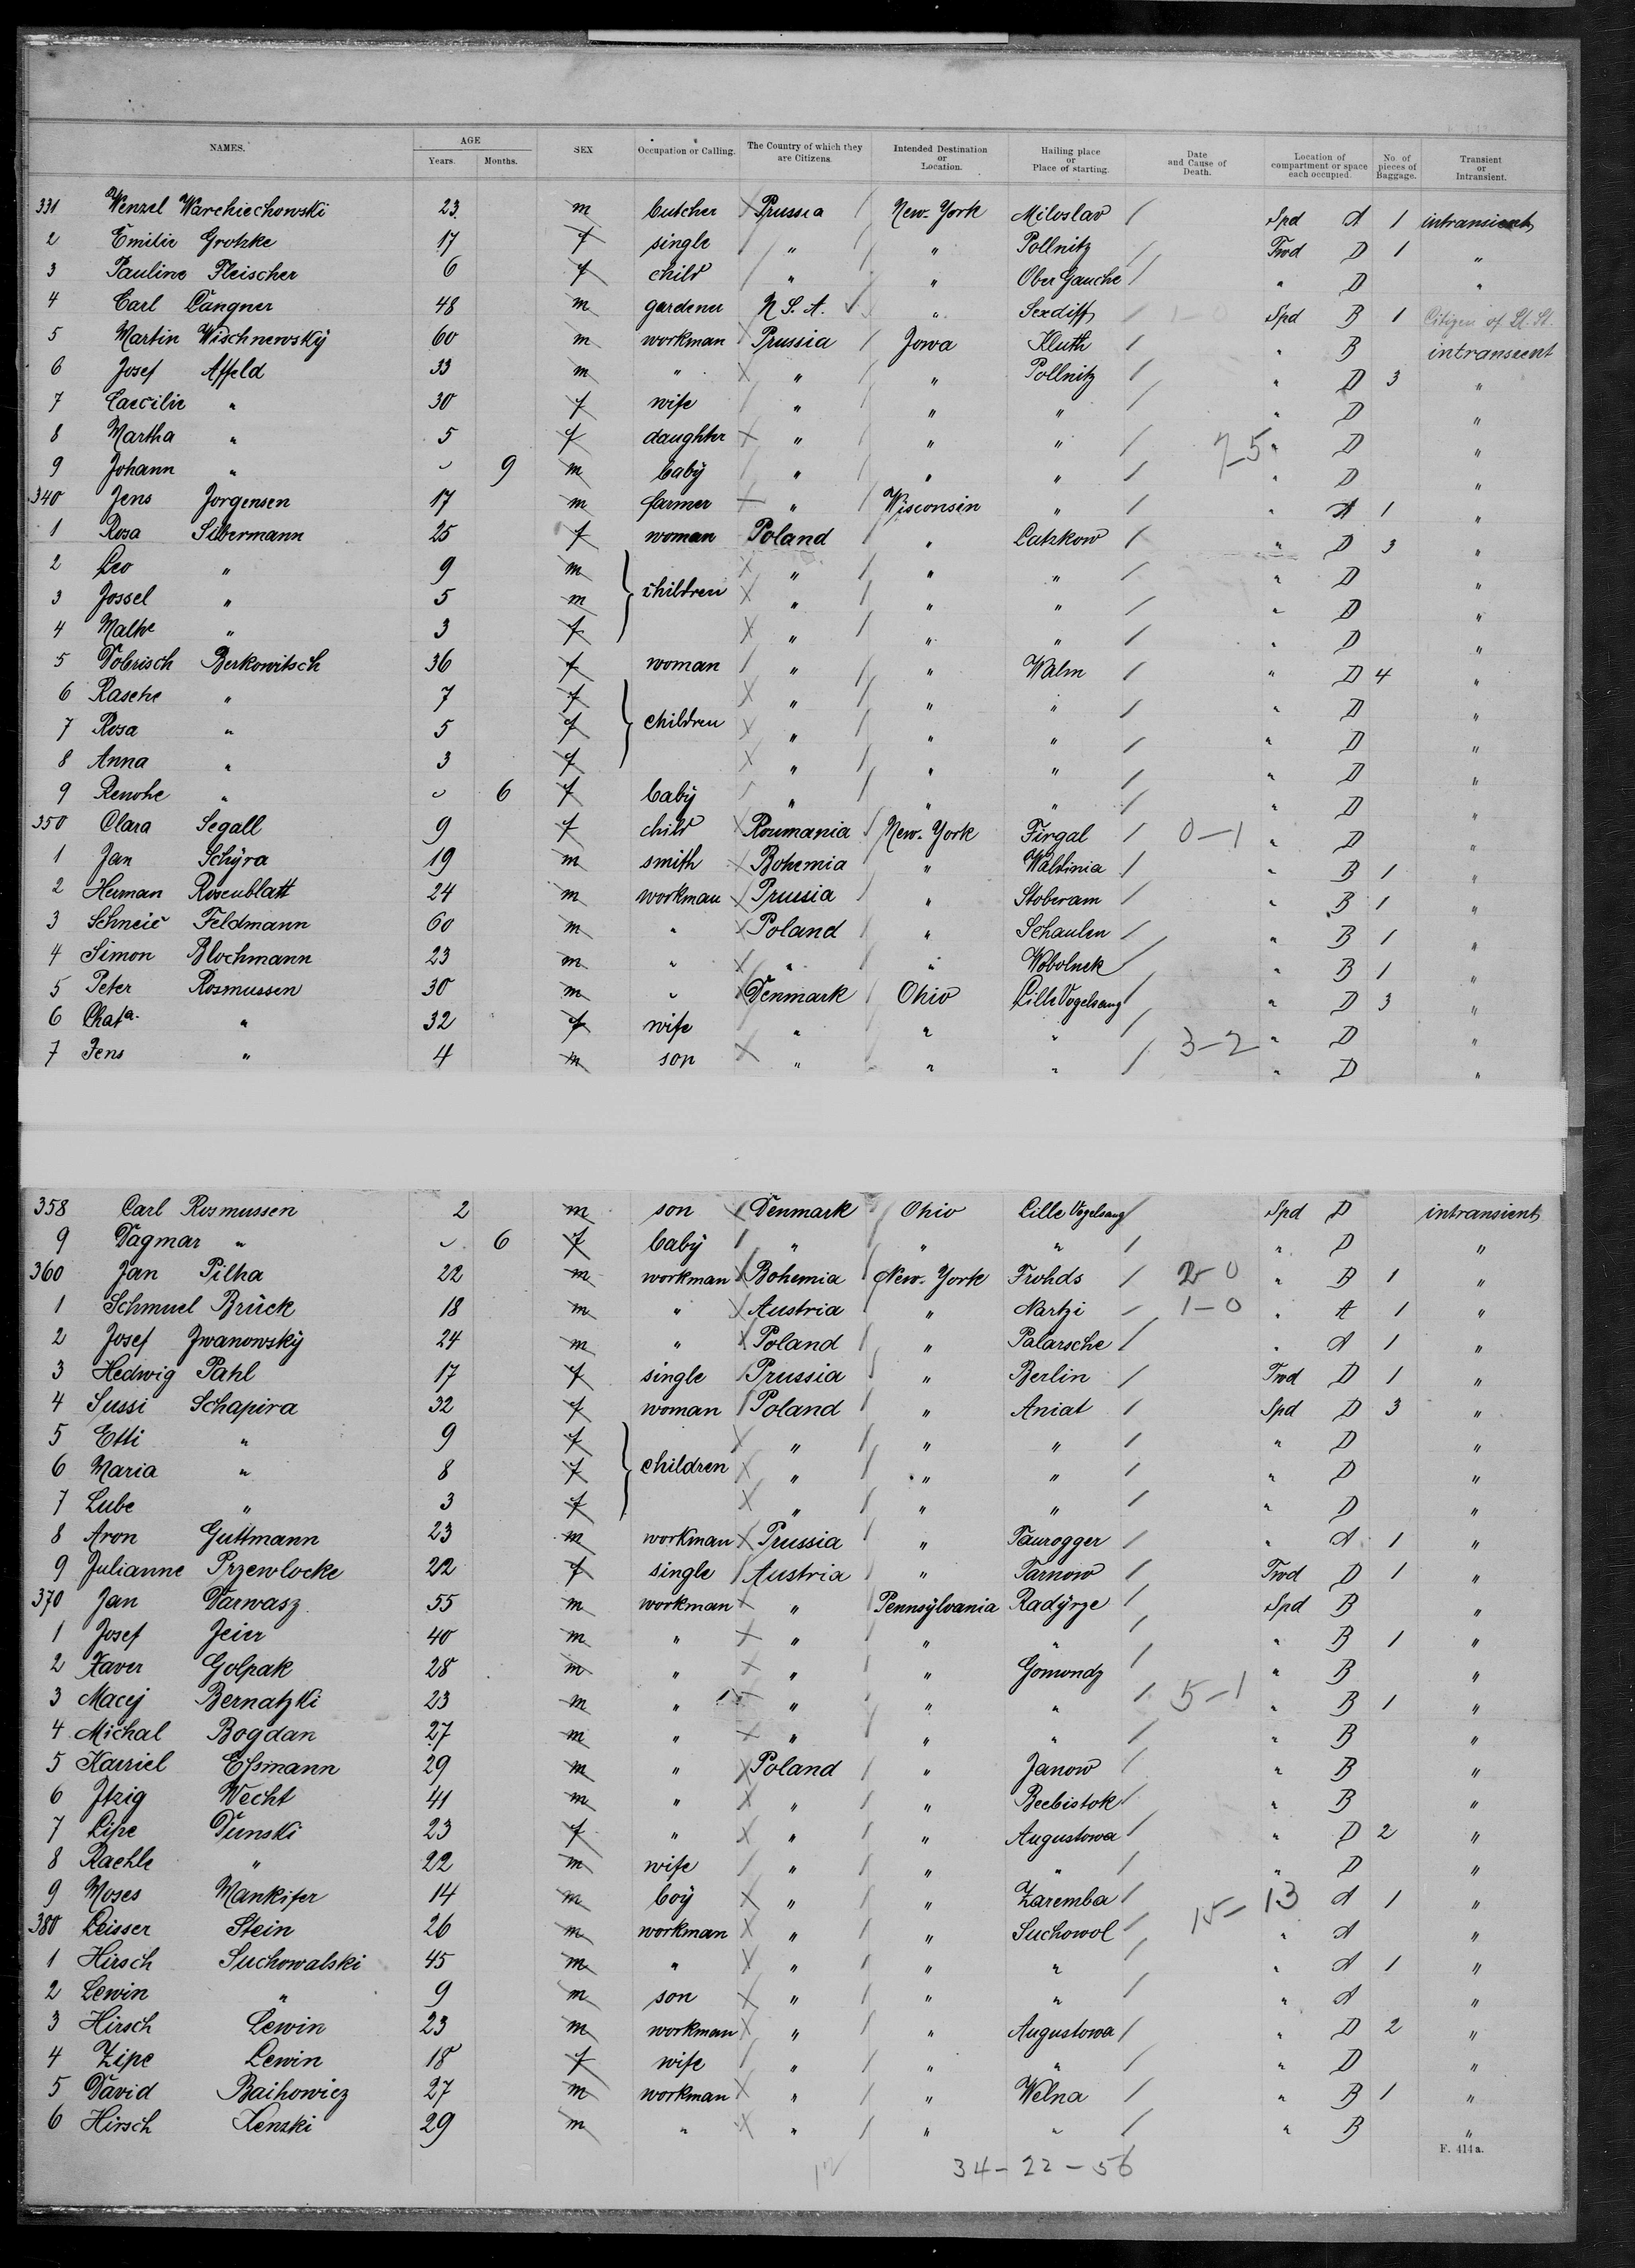 NAMES. AGE SEX Occupation or Calling. The Country of which they are Citizens. Intended Destination or Location. Hailing place or Place of starting. Date and Cause of Death. Location of compartment or space each occupied. No. of pieces of Baggage. Transient or Intransient.
Years. Months.
331 Wenzel Warchiechowski 23 m butcher Prussia New-York Miloslav Spd A 1 intransient
2 Emilie Grotzke 17 f single " " Pollnitz Fwd D 1 "
3 Pauline Fleischer 6 f child " " Ober Gauche " D "
4 Carl Langner 48 m gardener U. S. A. " 1-0 Spd B 1 Citizen of U. St.
5 Martin Wischnewsky 60 m workman Prussia Jowa Kluth " B intransient
6 Josef Affeld 33 m " " " Pollnitz " D 3 "
7 Caecilie " 30 f wife " " " " D "
8 Martha " 5 f daughter " " " 7-5 " D "
9 Johann " 9 m baby " " " " D "
340 Jens Jorgensen 17 m farmer " Wisconsin " " A 1 "
1 Rosa Silbermann 25 f woman Poland " Latzkow " D 3 "
2 Leo " 9 m children " " " " D "
3 Jossel " 5 m " " " " D "
4 Malke " 3 f " " " " D "
5 Dobrisch Berkowitsch 36 f woman " " Walm " D 4 "
6 Rasche " 7 f children " " " " D "
7 Rosa " 5 f " " " " D "
8 Anna " 3 f " " " " D "
9 Renohe " 6 f baby " " " " D "
350 Clara Segall 9 f child Roumania New-York Firgal 0-1 " D "
1 Jan Schyra 19 m smith Bohemia " Waldinia " B 1 "
2 Herman Rosenblatt 24 m workman Prussia " Stoberam " B 1 "
3 Schneie Feldmann 60 m " Poland " Schaulen " B 1 "
4 Simon Blochmann 23 m " " " Wobolnek " B 1 "
5 Peter Rosmussen 30 m " Denmark Ohio Lille Vogelsang " D 3 "
6 Chata. " 32 f wife " " " " D "
7 Jens " 4 m son " " " 3-2 " D "
358 Carl Rosmussen 2 m son Denmark Ohio Lille Vogelsang Spd D intransient
9 Dagmar " 6 f baby " " " " D "
360 Jan Pilha 22 m workman Bohemia New-York Frohds 2-0 " B 1 "
1 Schmuel Brück 18 m " Austria " Nartzi 1-0 " A 1 "
2 Josef Jwanowsky 24 m " Poland " Palarsche " A 1 "
3 Hedwig Pahl 17 f single Prussia " Berlin Fwd D 1 "
4 Sussi Schapira 32 f woman Poland " Aniat Spd D 3 "
5 Etti " 9 f children " " " " D "
6 Maria " 8 f " " " " D "
7 Lube " 3 f " " " " D "
8 Aron Guttmann 23 m workman Prussia " Taurogger " A 1 "
9 Julianne Przewlocke 22 f single Austria " Tarnow Fwd D 1 "
370 Jan Darwasz 55 m workman " Pennsylvania Radyrze Spd B "
1 Josef Jeier 40 m " " " " " B 1 "
2 Xaver Golpak 28 m " " " Gomondz " B "
3 Macij Bernatzki 23 m " " " " 5-1 " B 1 "
4 Michal Bogdan 27 m " " " " " B "
5 Karriel Essmann 29 m " Poland " Janow " B "
6 Jtzig Wecht 41 m " " " Beebistok " B "
7 Lipe Dunski 23 f " " " Augustowa " D 2 "
8 Rachle " 22 m wife " " " " D "
9 Moses Mankifer 14 m boy " " Zaremba 15-13 A 1 "
380 Leisser Stein 26 m workman " " Suchowol " A "
1 Hirsch Suchowalski 45 m " " " " " A 1 "
2 Lewin " 9 m son " " " " A "
3 Hirsch Lewin 23 m workman " " Augustowa " D 2 "
4 Zipe Lewin 18 f wife " " " " D "
5 David Baihowicz 27 m workman " " Welna " B 1 "
6 Hirsch Kenzki 29 m " " " " " B "
F. 414a.
34-22-56